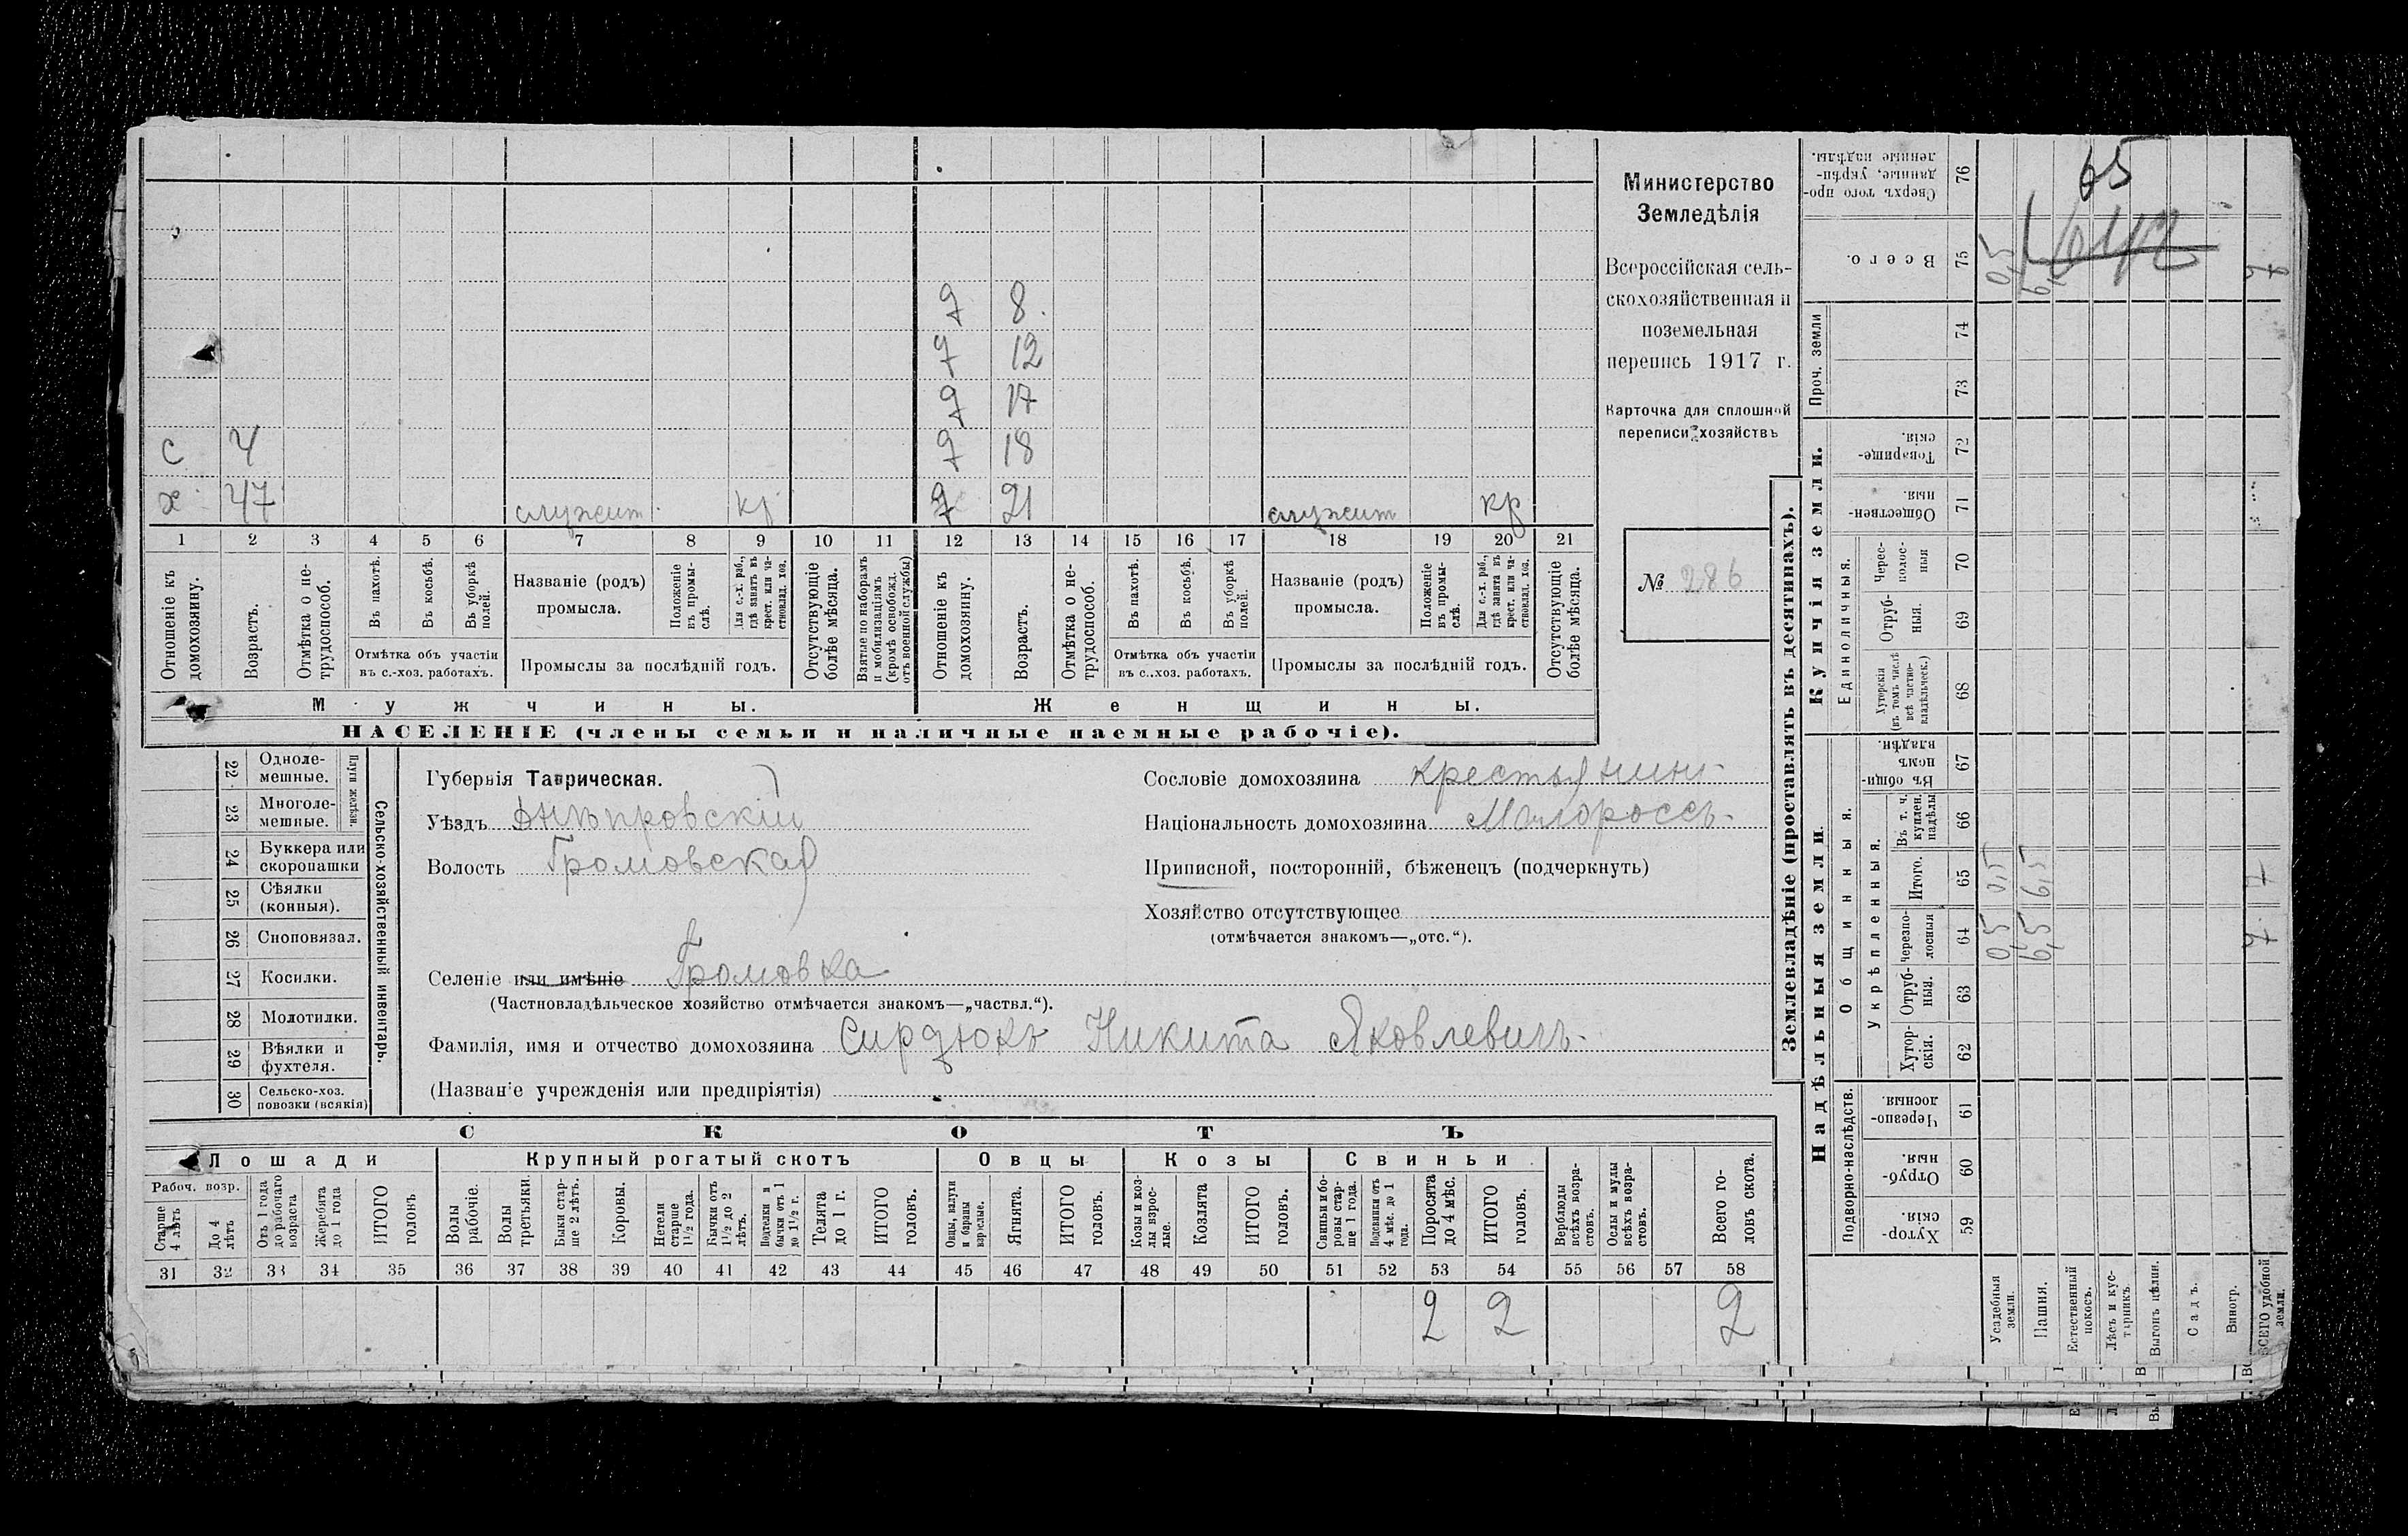 Министерство
Земледѣлія
Всероссійская сель-
скохозяйственная и
поземельная
перепись 1917 г.
Карточка для сплошной
переписи хозяйствъ
№ 286
д 8
д 12
д 17
с 4 д 18
х 47 служит кр д 21 служит кр
1 2 3 4 5 6 7 8 9 10 11 12 13 14 15 16 17 18 19 20 21
Отношеніе къ домохозяину.
Возрастъ.
Отмѣтка о не-трудоспособ.
Въ пахотѣ.
Въ косьбѣ.
Въ уборкѣ полей.
Отмѣтка объ участіи
въ с.-хоз. работахъ.
Названіе (родъ)
промысла.
Положеніе въ промы-слѣ.
Для с.-х. раб., гдѣ занятъ въ крест. или ча-стновлад. хоз.
Промыслы за послѣдній годъ.
Отсутствующіе болѣе мѣсяца.
Взятые по наборамъ и мобилизаціямъ (кромѣ освобожд. отъ военной службы)
Отношеніе къ домохозяину.
Возрастъ.
Отмѣтка о не-трудоспособ.
Въ пахотѣ.
Въ косьбѣ.
Въ уборкѣ полей.
Отмѣтка объ участіи
въ с..хоз. работахъ.
Названіе (родъ)
промысла.
Положеніе въ промы-слѣ.
Для с.-х. раб., гдѣ занята въ крест. или ча-стновлад. хоз.
Промыслы за послѣдній годъ.
Отсутствующіе болѣе мѣсяца.
Мужчины. Женщины.
НАСЕЛЕНІЕ (члены семьи и наличные наемные рабочіе).
Сельско-хозяйственный инвентарь.
Плуги желѣзн.
22 Одноле-мешные.
23 Многоле-мешные.
24 Буккера или скоропашки
25 Сѣялки (конныя).
26 Сноповязал.
27 Косилки.
28 Молотилки.
29 Вѣялки и фухтеля.
30 Сельско-хоз. повозки (всякія)
Губернія Таврическая.
Уѣздъ Днѣпровскій
Волость Громовская
Селеніе или имѣніе Громовка
(Частновладѣльческое хозяйство отмѣчается знакомъ—„частвл.“).
Фамилія, имя и отчество домохозяина Сирдюкъ Никита Яковлевичъ
(Названіе учрежденія или предпріятія)
Сословіе домохозяина крестьянинъ
Національность домохозяина Малороссъ
Приписной, посторонній, бѣженецъ (подчеркнуть)
Хозяйство отсутствующее
(отмѣчается знакомъ—„отс.“).
СКОТЪ
Лошади Крупный рогатый скотъ Овцы Козы Свиньи
Рабоч. возр.
Старше 4 лѣтъ
До 4 лѣтъ
Отъ 1 года до рабочаго возраста
Жеребята до 1 года
ИТОГО головъ
Волы рабочіе.
Волы третьяки.
Быки стар-ше 2 лѣтъ.
Коровы.
Нетели старше 1½ года.
Бычки отъ 1½ до 2 лѣтъ.
Подтелки и бычки отъ 1 до 1½ г.
Телята до 1 г.
ИТОГО головъ.
Овцы, валухи и бараны взрослые.
Ягнята.
ИТОГО головъ.
Козы и коз-лы взрос-лые.
Козлята
ИТОГО головъ.
Свиньи и бо-ровы стар-ше 1 года.
Подсвинки отъ 4 мѣс. до 1 года.
Поросята до 4 мѣс.
ИТОГО головъ.
Верблюды всѣхъ возра-стовъ.
Ослы и мулы всѣхъ возра-стовъ.
Всего го-ловъ скота.
31 32 33 34 35 36 37 38 39 40 41 42 43 44 45 46 47 48 49 50 51 52 53 54 55 56 57 58
2 2 2
Землевладѣніе (проставлять въ десятинахъ).
Надѣльныя земли.
Купчія земли.
Подворно-наслѣдств.
Общинныя.
Укрѣпленныя.
Единоличныя.
Проч. земли
Хутор-скія. 59
Отруб-ныя. 60
Черезпо-лосныя. 61
Хутор-скія. 62
Отруб-ныя. 63
Черезпо-лосныя 64
Итого. 65
Въ т. ч. куплен. надѣлы 66
Въ общин-номъ владѣн. 67
Хуторскія (въ томъ числѣ всѣ частно-владѣльческ.) 68
Отруб-ныя. 69
Черес-полос-ныя 70
Обществен-ныя. 71
Товарище-скія. 72
73
74
Всего. 75
Сверхъ того про-данные, укрѣп-ленные надѣлы. 76
Усадебныя земли. 0,5 0,5 0,5
Пашня. 6,5 6,5
Естественный покосъ.
Лѣсъ и кус-тарникъ.
Выгонъ цѣлин.
Садъ.
Виногр.
ВСЕГО удобной земли. 7 7 7
65